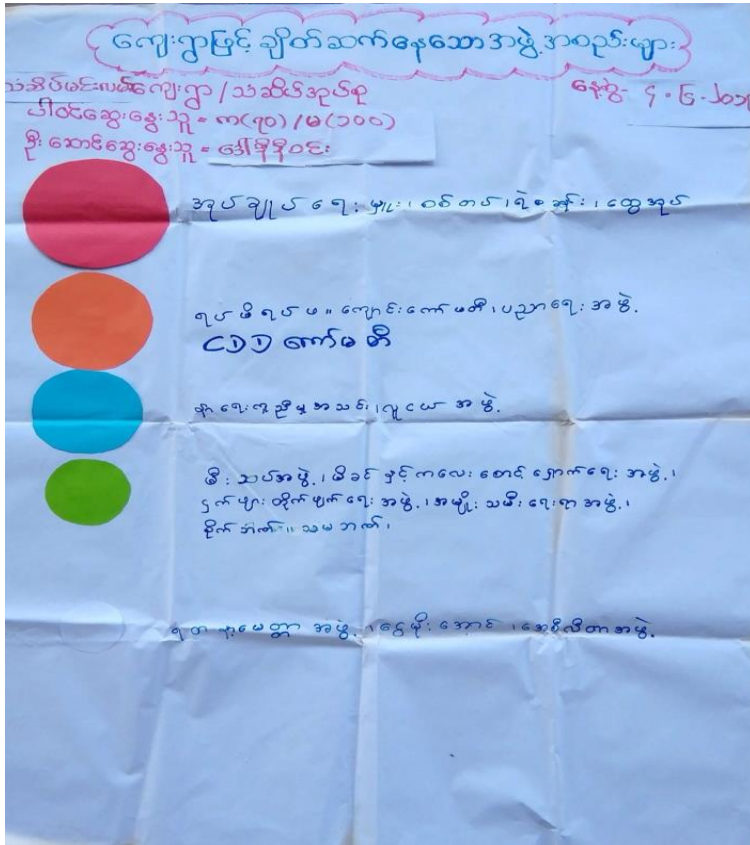 ကျေးရွာဖြင့် ချိတ်ဆက်နေသောအဖွဲ့အစည်းများ
သံဆိပ်မင်းလမ်ကျေးရွာ / သံဆိပ်အုပ်စု
နေ့စွဲ-
ပါဝင်ဆွေးနွေးသူ = က(၇၀) / မ(၁၀၀)
ဦးဆောင်ဆွေးနွေးသူ = ဒေါ်နီနီဝင်း
အုပ်ချုပ်ရေးမှူး၊ စစ်တပ်၊ ရဲစခန်း၊ ထွေအုပ်
ရပ်မိရပ်ဖ။ ကျောင်းကော်မတီ၊ ပညာရေးအဖွဲ့
CDD ကော်မတီ
နာရေးကူညီမှုအသင်း၊ လူငယ်အဖွဲ့
မီးသပ်အဖွဲ့၊ မိခင်နှင့်ကလေးစောင့်ရှောက်ရေးအဖွဲ့၊
ငှက်ဖျားတိုက်ဖျက်ရေးအဖွဲ့၊ အမျိုးသမီးရေးရာအဖွဲ့၊
စိုက်ဘဏ်။ သမဘဏ်၊
ရတနာမေတ္တာအဖွဲ့၊ ရွှေမိုးအောင်၊ အဖွဲ့